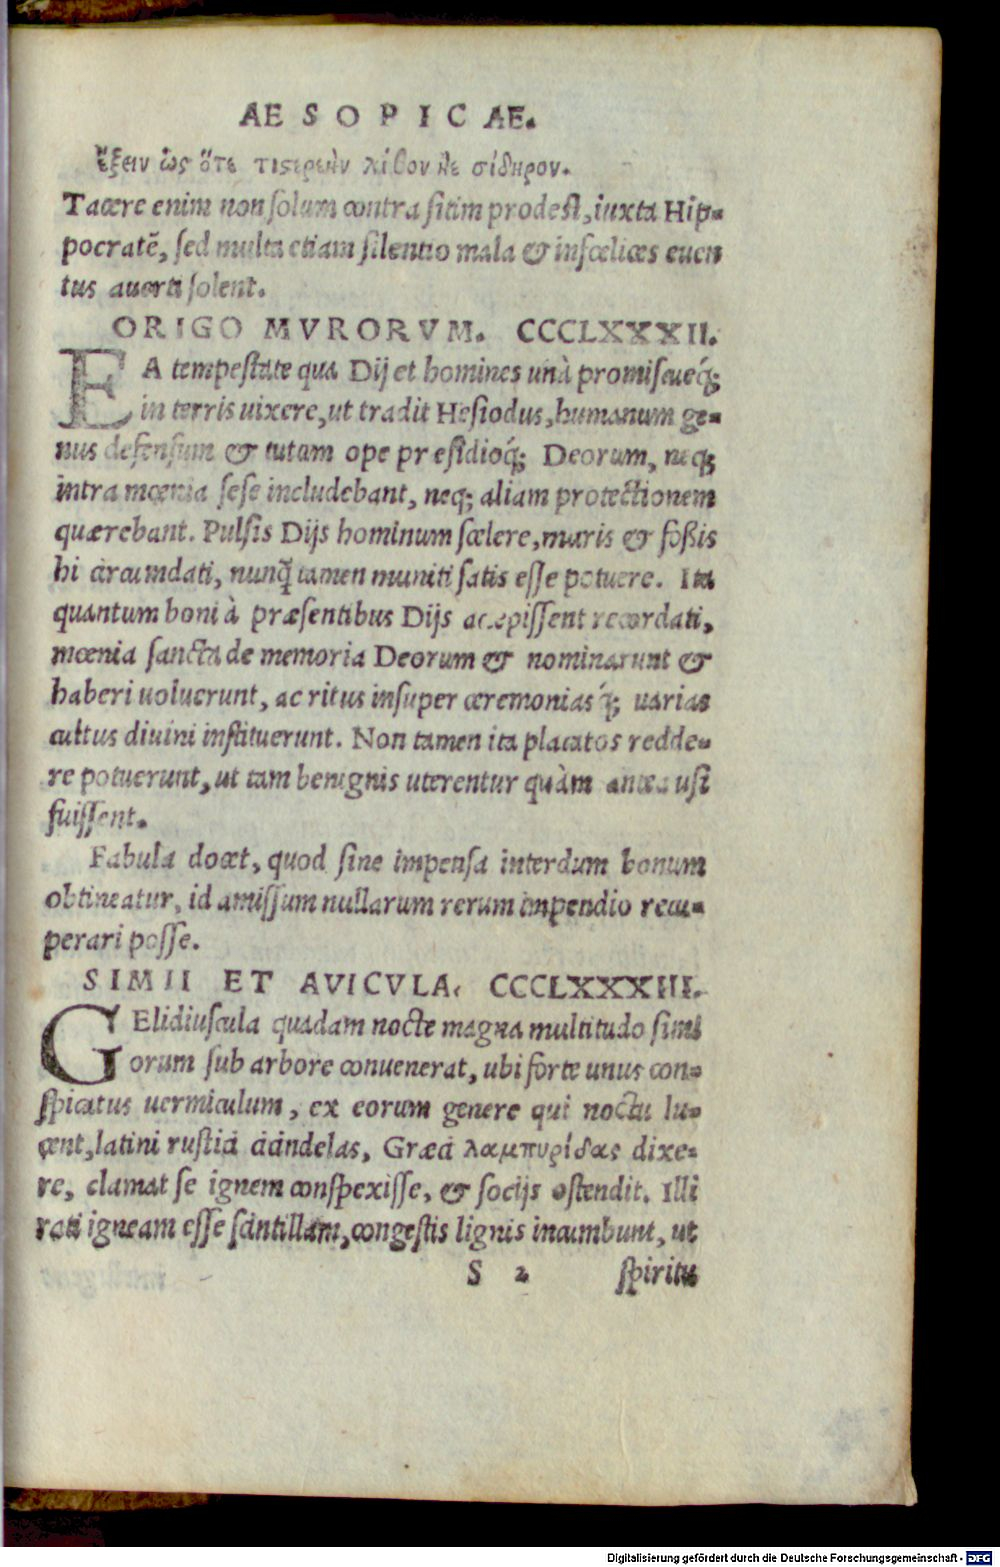 AESOPICAE.
ἕξειν ὡς ὅτε τις στερεὴν λίθον ἠὲ σίδηρον.
Tacere enim non solum contra sitim prodest, iuxta Hip-
pocratẽ, sed multa etiam silentio mala & infœlices euen
tus auerti solent.
ORIGO MVRORVM. CCCLXXXII.
EA tempestate qua Dij et homines unà promiscueq́;
in terris uixere, ut tradit Hesiodus, humanum ge-
nus defensum & tutam ope præsidioq́; Deorum, neq;
intra mœnia sese includebant, neq; aliam protectionem
quærebant. Pulsis Dijs hominum scelere, muris & foßis
hi circumdati, nunq̃ tamen muniti satis esse potuere. Ita
quantum boni à præsentibus Dijs accepissent recordati,
mœnia sancta de memoria Deorum & nominarunt &
haberi uoluerunt, ac ritus insuper ceremoniasq́; uarias
cultus diuini instituerunt. Non tamen ita placatos redde-
re potuerunt, ut tam benignis uterentur quàm antea usi
fuissent.
Fabula docet, quod sine impensa interdum bonum
obtineatur, id amissum nullarum rerum impendio recu-
perari posse.
SIMII ET AVICVLA. CCCLXXXIII.
GElidiuscula quadam nocte magna multitudo simi
orum sub arbore conuenerat, ubi forte unus con-
spicatus uermiculum, ex eorum genere qui noctu lu-
cent, latini rustici cicindelas, Græci λαμπυρίδας dixe-
re, clamat se ignem conspexisse, & socijs ostendit. Illi
rati igneam esse scintillam, congestis lignis incumbunt, ut
S 2 spiritu
Digitalisierung gefördert durch die Deutsche Forschungsgemeinschaft - DFG